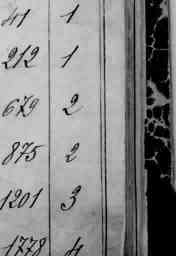 41 1
212 1
679 2
875 2
1201 3
1778 4